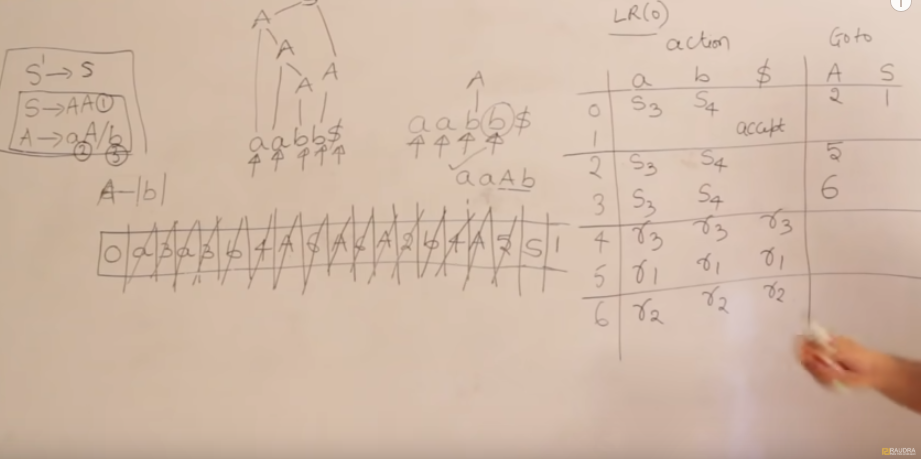 S' → S
S → AA ①
A → aA/b
② ③
A-|b|
A
A
A A
aabb$
A
aabb$
aaAb
0 a 3 a 3 b 4 A 6 A 6 A 2 b 4 A 5 S 1
LR(0)
action Goto
a b $ A S
0 S3 S4 2 1
1 accept
2 S3 S4 5
3 S3 S4 6
4 r3 r3 r3
5 r1 r1 r1
6 r2 r2 r2